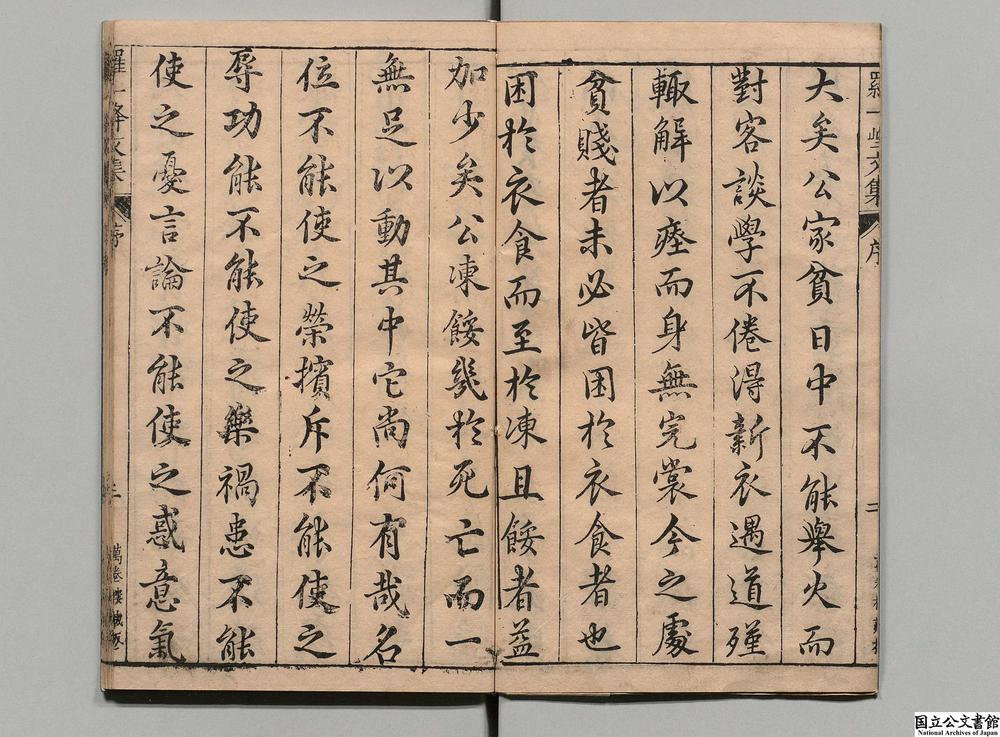 羅一峰文集
序
二
大矣公家貧日中不能舉火而
對客談學不倦得新衣遇道殣
輙解以瘞而身無完裳今之處
貧賤者未必皆困於衣食者也
困於衣食而至於凍且餒者益
加少矣公凍餒幾於死亡而一
無足以動其中它尚何有哉名
位不能使之榮擯斥不能使之
辱功能不能使之樂禍患不能
使之憂言論不能使之惑意氣
羅一峰文集
序
三
萬卷樓
国立公文書館
National Archives of Japan